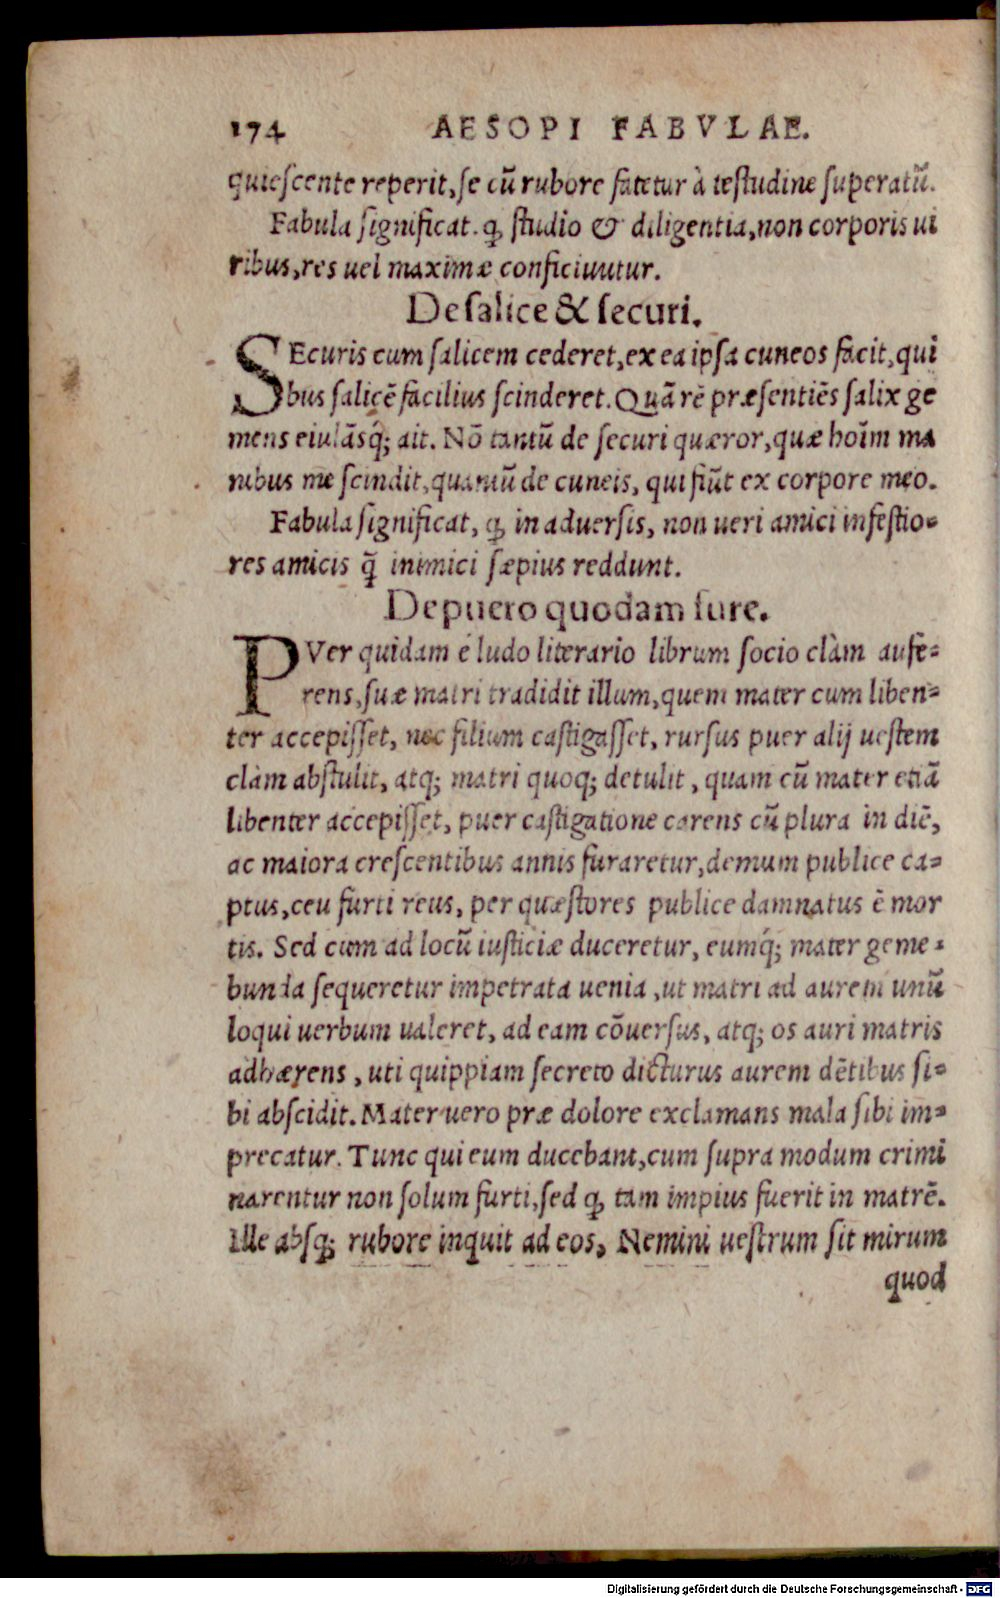 174 AESOPI FABVLAE.
quiescente reperit, se cū rubore fatetur à testudine superatū.
Fabula significat. ꝙ studio & diligentia, non corporis ui
ribus, res uel maximæ conficiuutur.
De salice & securi.
SEcuris cum salicem cederet, ex ea ipsa cuneos facit, qui
bus salicē facilius scinderet. Quā rē præsentiēs salix ge
mens eiulāsq́; ait. Nō tantū de securi quæror, quæ hoīm ma
nibus me scindit, quantū de cuneis, qui fiūt ex corpore meo.
Fabula significat, ꝙ in aduersis, non ueri amici infestio-
res amicis q̄ inimici sæpius reddunt.
De puero quodam fure.
PVer quidam é ludo literario librum socio clàm aufe-
rens, suæ matri tradidit illum, quem mater cum liben-
ter accepisset, nec filium castigasset, rursus puer alij uestem
clàm abstulit, atq; matri quoq; detulit, quam cū mater etiā
libenter accepisset, puer castigatione carens cū plura in diē,
ac maiora crescentibus annis furaretur, demum publice ca-
ptus, ceu furti reus, per quæstores publice damnatus ē mor
tis. Sed cum ad locū iusticiæ duceretur, eumq́; mater geme-
bunda sequeretur impetrata uenia, ut matri ad aurem unū
loqui uerbum ualeret, ad eam cōuersus, atq; os auri matris
adhærens, uti quippiam secreto dicturus aurem dētibus si-
bi abscidit. Mater uero præ dolore exclamans mala sibi im-
precatur. Tunc qui eum ducebant, cum supra modum crimi
narentur non solum furti, sed ꝙ tam impius fuerit in matrē.
Ille absq; rubore inquit ad eos, Nemini uestrum sit mirum
quod
Digitalisierung gefördert durch die Deutsche Forschungsgemeinschaft - DFG